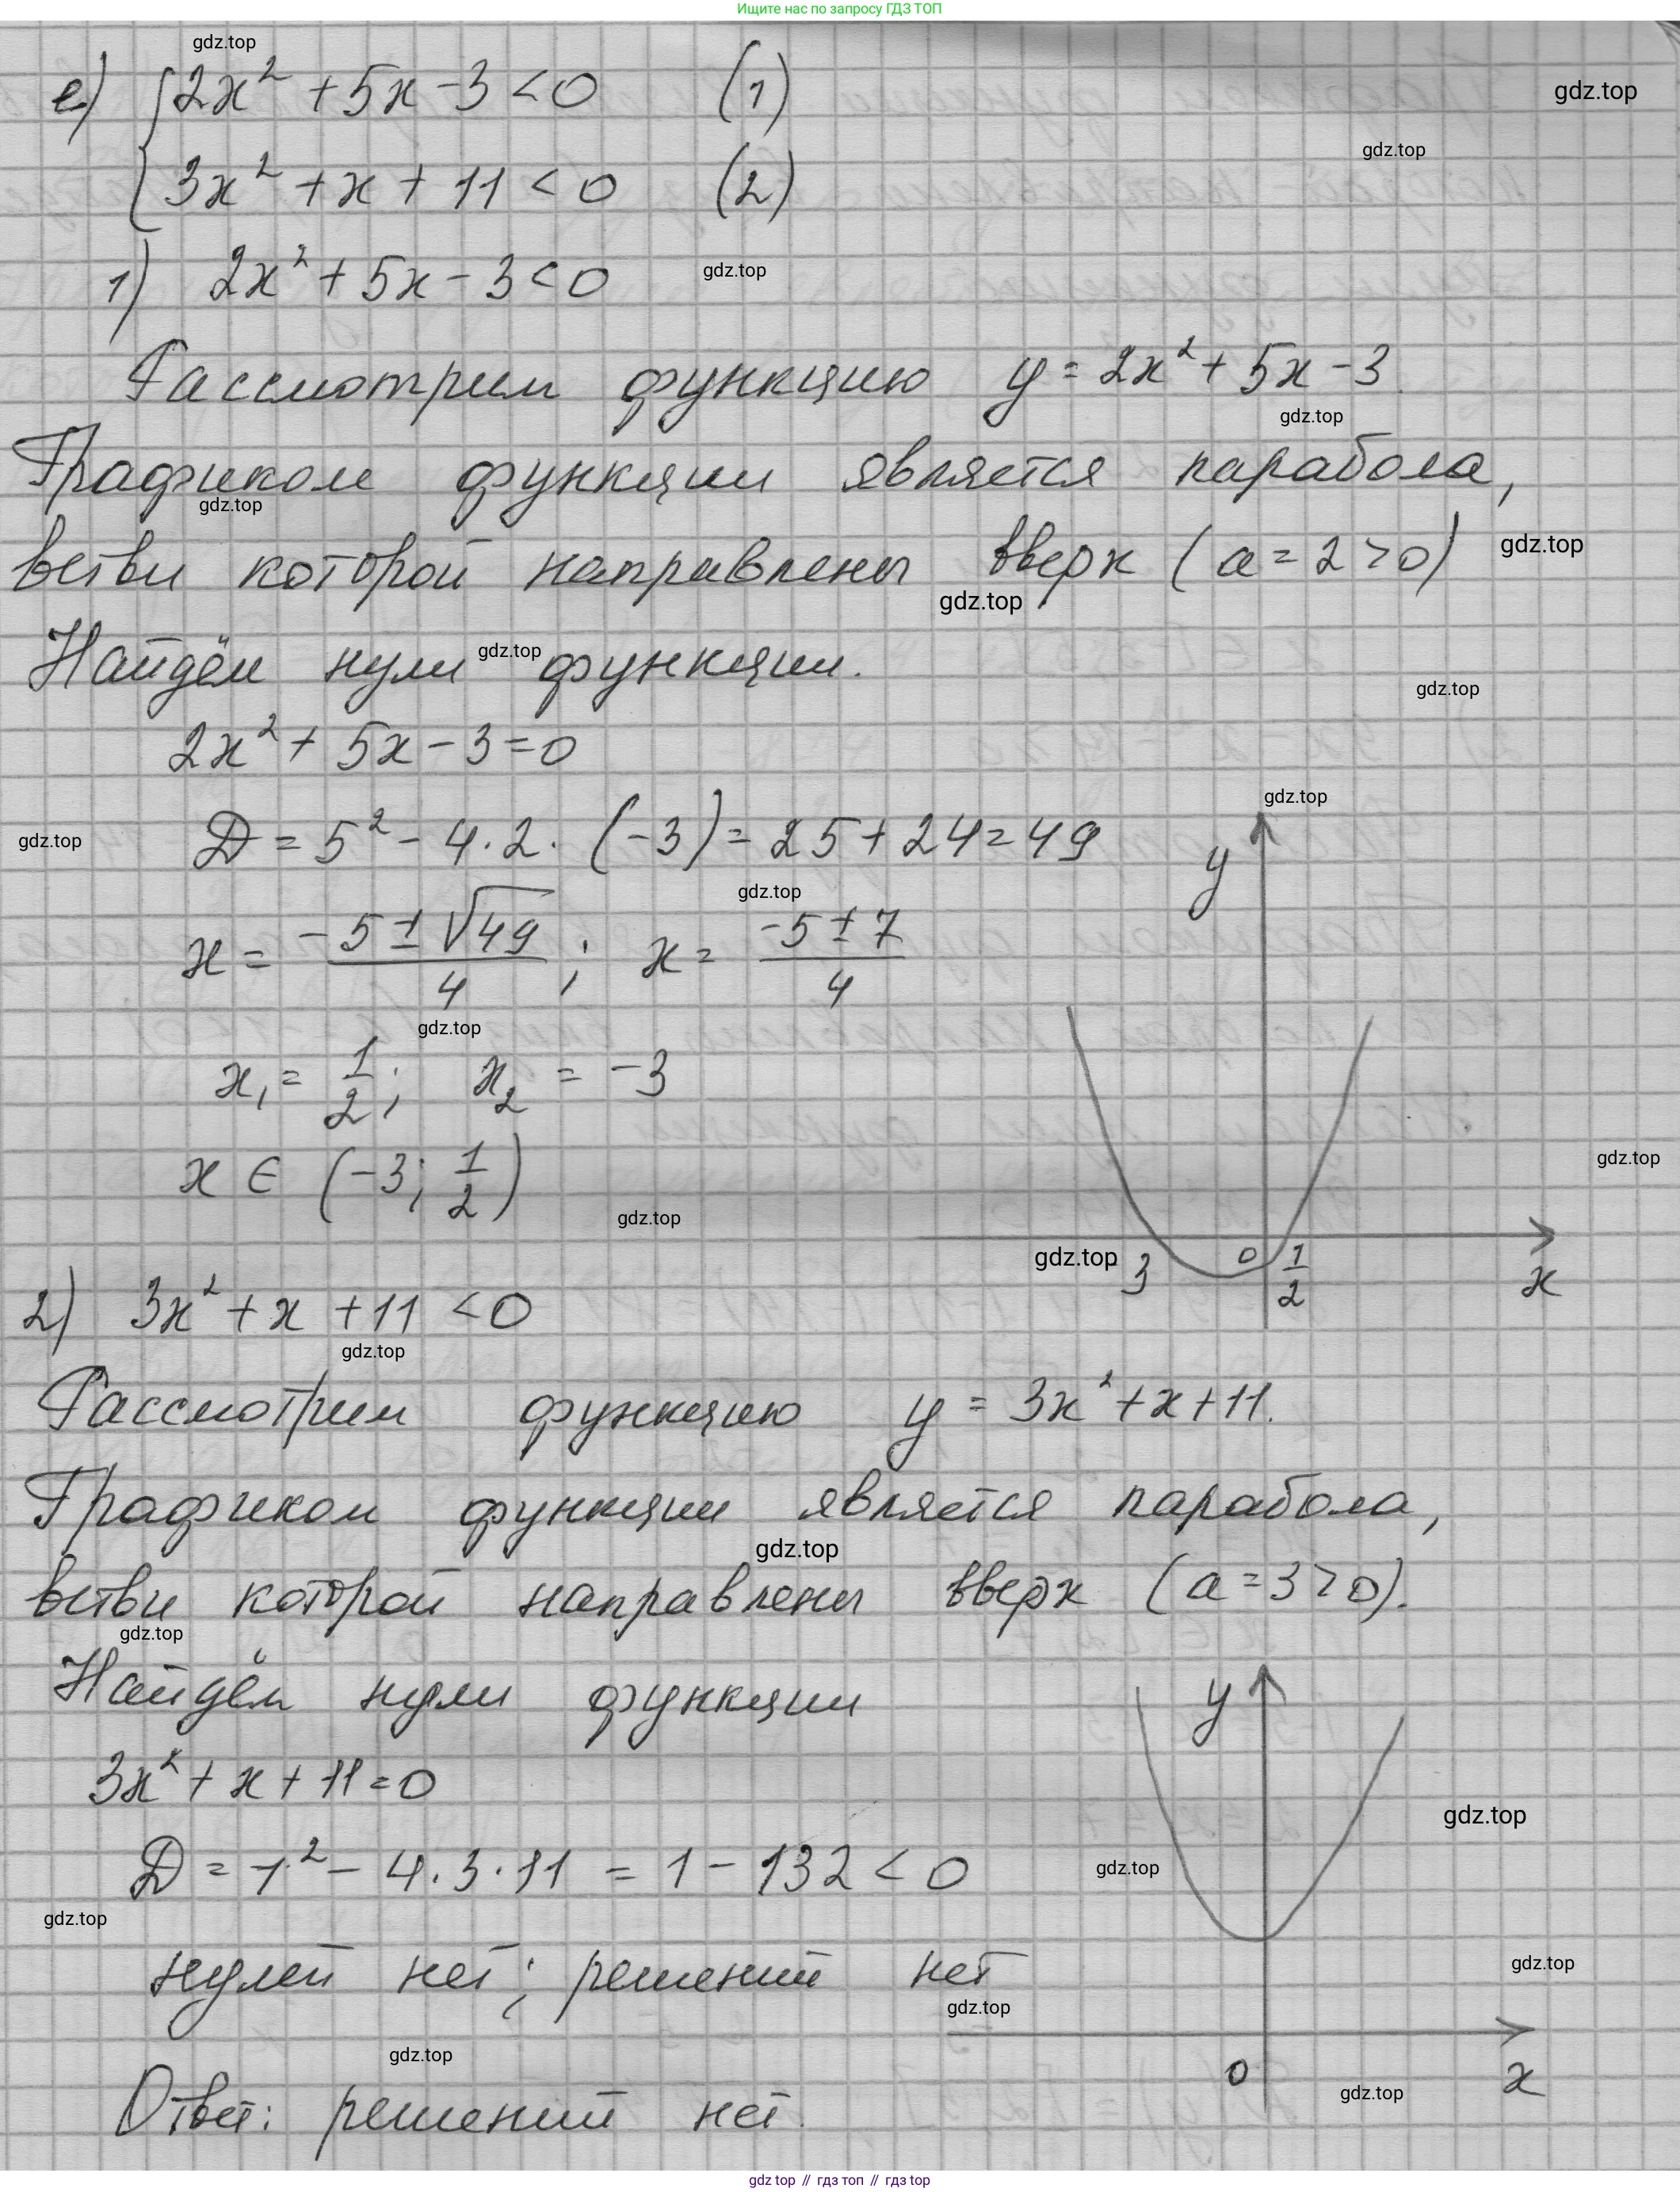 Ищите нас по запросу ГДЗ ТОП
gdz.top
е) { 2x² + 5x - 3 < 0 (1)
gdz.top
gdz.top
3x² + x + 11 < 0 (2)
1) 2x² + 5x - 3 < 0
gdz.top
Рассмотрим функцию y = 2x² + 5x - 3.
gdz.top
Графиком функции является парабола,
gdz.top
ветви которой направлены вверх (a = 2 > 0)
gdz.top
gdz.top
Найдём нули функции.
gdz.top
gdz.top
2x² + 5x - 3 = 0
gdz.top
D = 5² - 4·2·(-3) = 25 + 24 = 49
gdz.top
y
gdz.top
x = (-5 ± √49)/4 ; x = (-5 ± 7)/4
gdz.top
x₁ = 1/2; x₂ = -3
x ∈ (-3; 1/2)
gdz.top
gdz.top
gdz.top
3 0 1/2
x
2) 3x² + x + 11 < 0
gdz.top
Рассмотрим функцию y = 3x² + x + 11.
Графиком функции является парабола,
gdz.top
ветви которой направлены вверх (a = 3 > 0).
gdz.top
Найдём нули функции
y
3x² + x + 11 = 0
gdz.top
D = 1² - 4·3·11 = 1 - 132 < 0
gdz.top
gdz.top
нулей нет; решений нет
gdz.top
gdz.top
gdz.top
0 x
gdz.top
Ответ: решений нет.
gdz top // гдз топ // гдз top